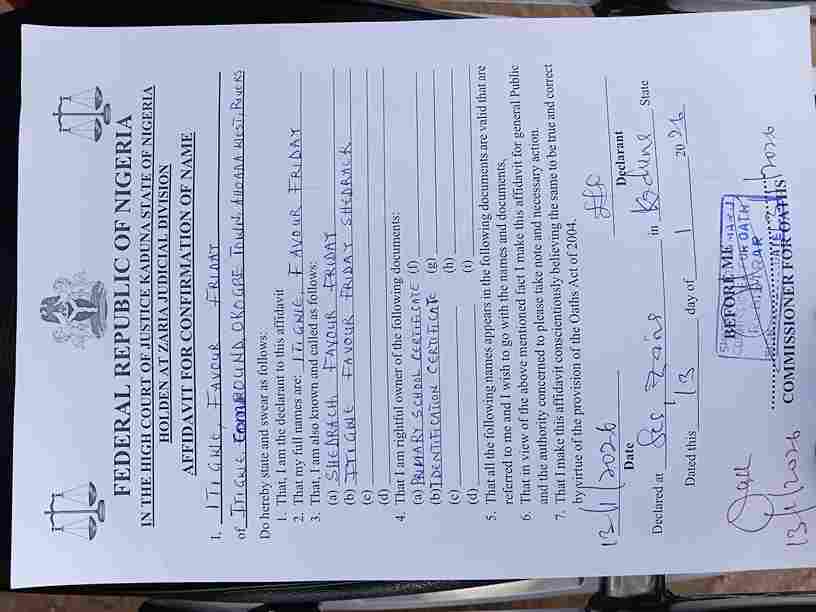 FEDERAL REPUBLIC OF NIGERIA
IN THE HIGH COURT OF JUSTICE KADUNA STATE OF NIGERIA
HOLDEN AT ZARIA JUDICIAL DIVISION
AFFIDAVIT FOR CONFIRMATION OF NAME
I, ITIGWE, FAVOUR FRIDAY
of ITIGWE COMPOUND, OKOGBE TOWN AHOADA WEST RIVERS
Do hereby state and swear as follows:
1. That, I am the declarant to this affidavit
2. That my full names are: ITIGWE, FAVOUR FRIDAY
3. That, I am also known and called as follows:
(a) SHEDRACH FAVOUR FRIDAY
(b) ITIGWE FAVOUR FRIDAY SHEDRACK
(c)
(d)
4. That I am rightful owner of the following documents:
(a) PRIMARY SCHOOL CERTIFICATE (f)
(b) IDENTIFICATION CERTIFICATE (g)
(c) (h)
(d) (i)
5. That all the following names appears in the following documents are valid that are
referred to me and I wish to go with the names and documents,
6. That in view of the above mentioned fact I make this affidavit for general Public
and the authority concerned to please take note and necessary action.
7. That I make this affidavit conscientiously believing the same to be true and correct
by virtue of the provision of the Oaths Act of 2004.
13/1/2026
Date Declarant
Declared at Zaria in Kaduna State
Dated this 13 day of 1 2026
BEFORE ME
13/1/2026
COMMISSIONER FOR OATHS